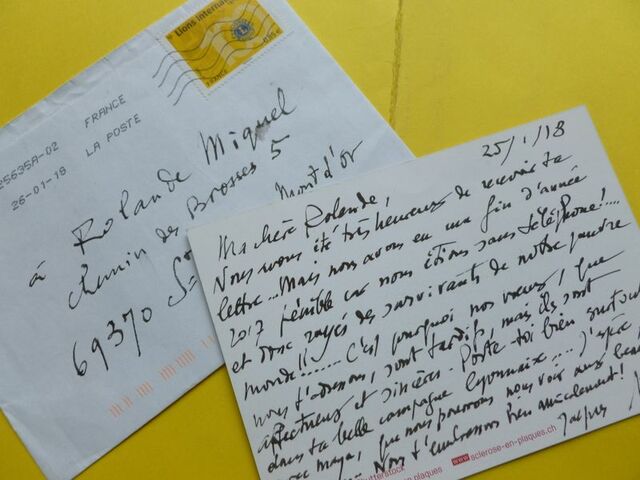 Lions Internati
0,95€
FRANCE
FRANCE
LA POSTE
25635A-02
26-01-18
à Rolande Miquel
Chemin des Brosses 5
69370 St Mont d'or
25/1/18
Ma chère Rolande,
Nous avons été très heureux de recevoir ta
lettre... Mais nous avons eu une fin d'année
2017 pénible car nous étions sans téléphone!...
et donc rayés des survivants de notre pauvre
monde!! ...... C'est pourquoi nos voeux, que
nous t'adressons, sont tardifs, mais ils sont
affectueux et sincères. Porte-toi bien surtout
dans ta belle campagne lyonnaise... J'espère
que nous pourrons nous voir aux beaux
... Nous t'embrassons bien amicalement!
Jacques
utterstock
www.sclerose-en-plaques.ch
plaques